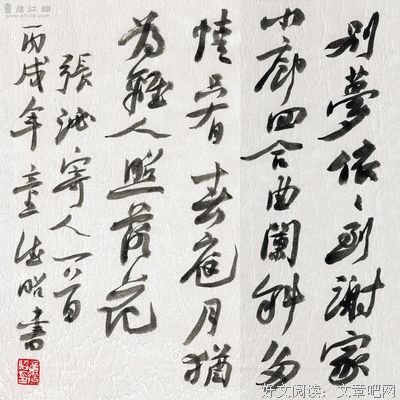 别夢依〻到謝家
小廊回合曲闌斜多
情只有春庭月猶
为離人照落花
張泌寄人一首
丙戌年童昭書
書法江湖
www.sf108.com
好文阅读：文章吧网